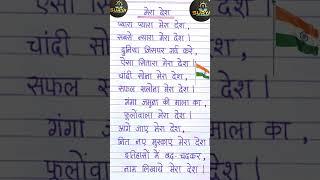 मेरा देश
प्यारा प्यारा मेरा देश,
सबसे न्यारा मेरा देश।
दुनिया जिसपर गर्व करे,
ऐसा सितारा मेरा देश।
चांदी सोना मेरा देश,
सफल सलोना मेरा देश।
गंगा जमुना की माला का,
फूलोंवाला मेरा देश।
आगे जाए मेरा देश,
नित नए मुस्काए मेरा देश
इतिहासों में बढ़-चढ़कर,
नाम लिखाये मेरा देश।